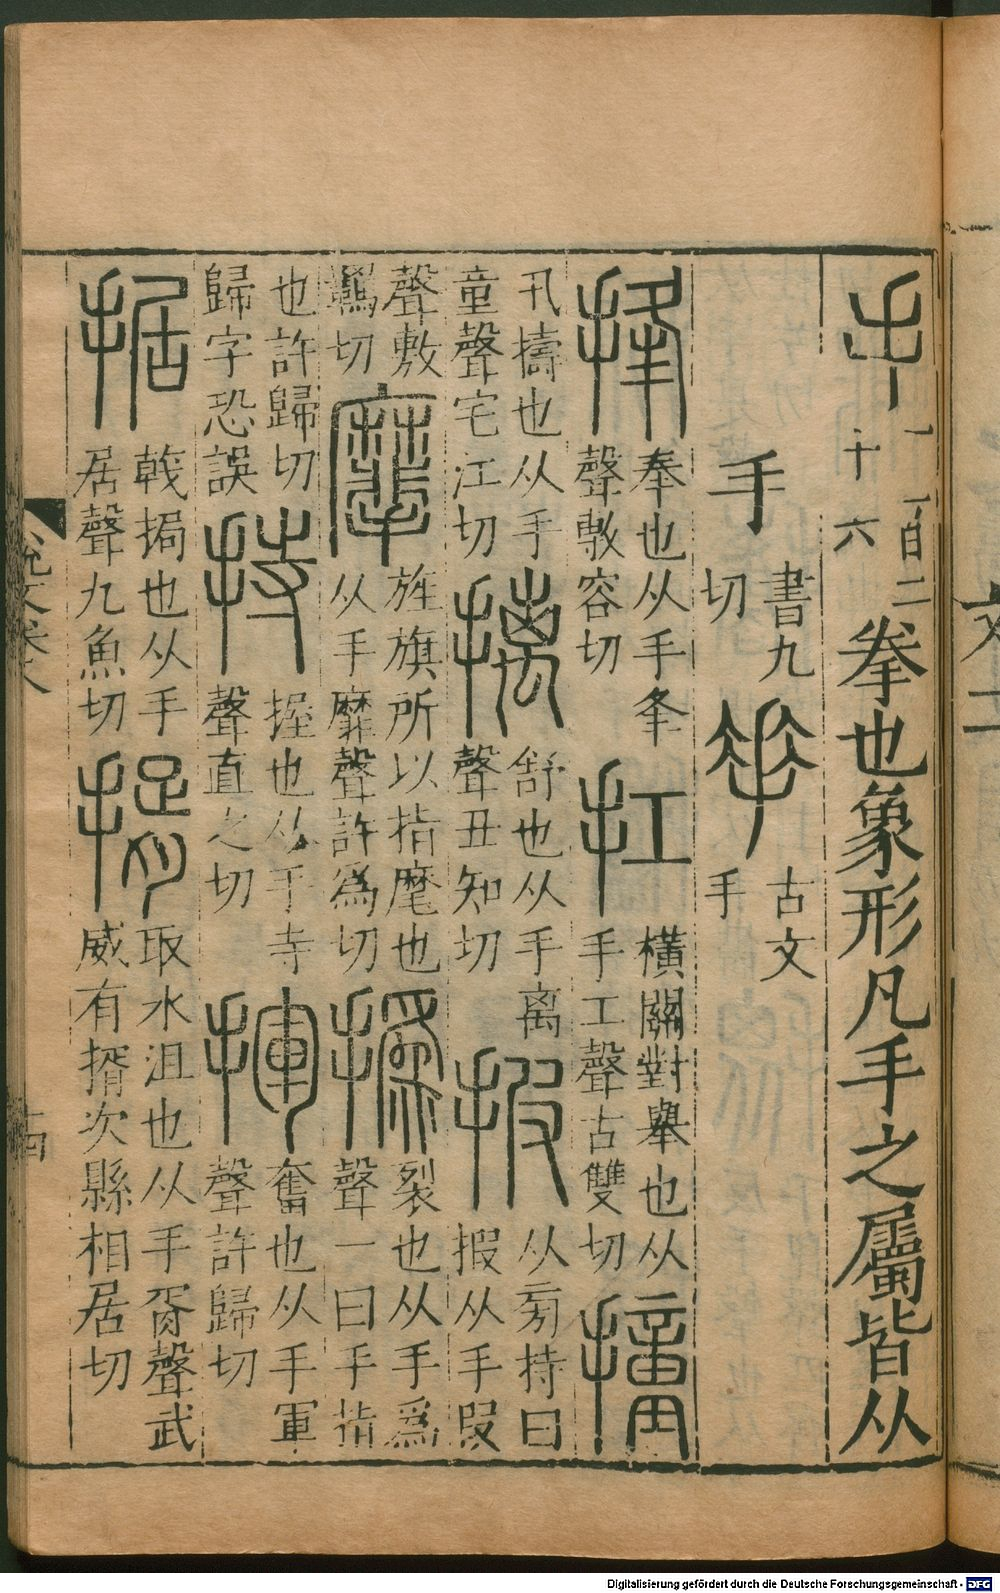 手 一百二十六 拳也象形凡手之屬皆从
手 書九切 𠂿 古文手
捀 奉也从手夆聲敷容切 扛 橫關對舉也从手工聲古雙切 撞
卂擣也从手童聲宅江切 摛 舒也从手离聲丑知切 披 从㫄持曰披从手皮
聲敷羈切 𪎮 旌旗所以指麾也从手靡聲許為切 撝 裂也从手為聲一曰手指
也許歸切歸字恐誤 持 握也从手寺聲直之切 揮 奮也从手軍聲許歸切
据 戟挶也从手居聲九魚切 揟 取水沮也从手胥聲武威有揟次縣相居切
說文卷八
十四
Digitalisierung gefördert durch die Deutsche Forschungsgemeinschaft - DFG